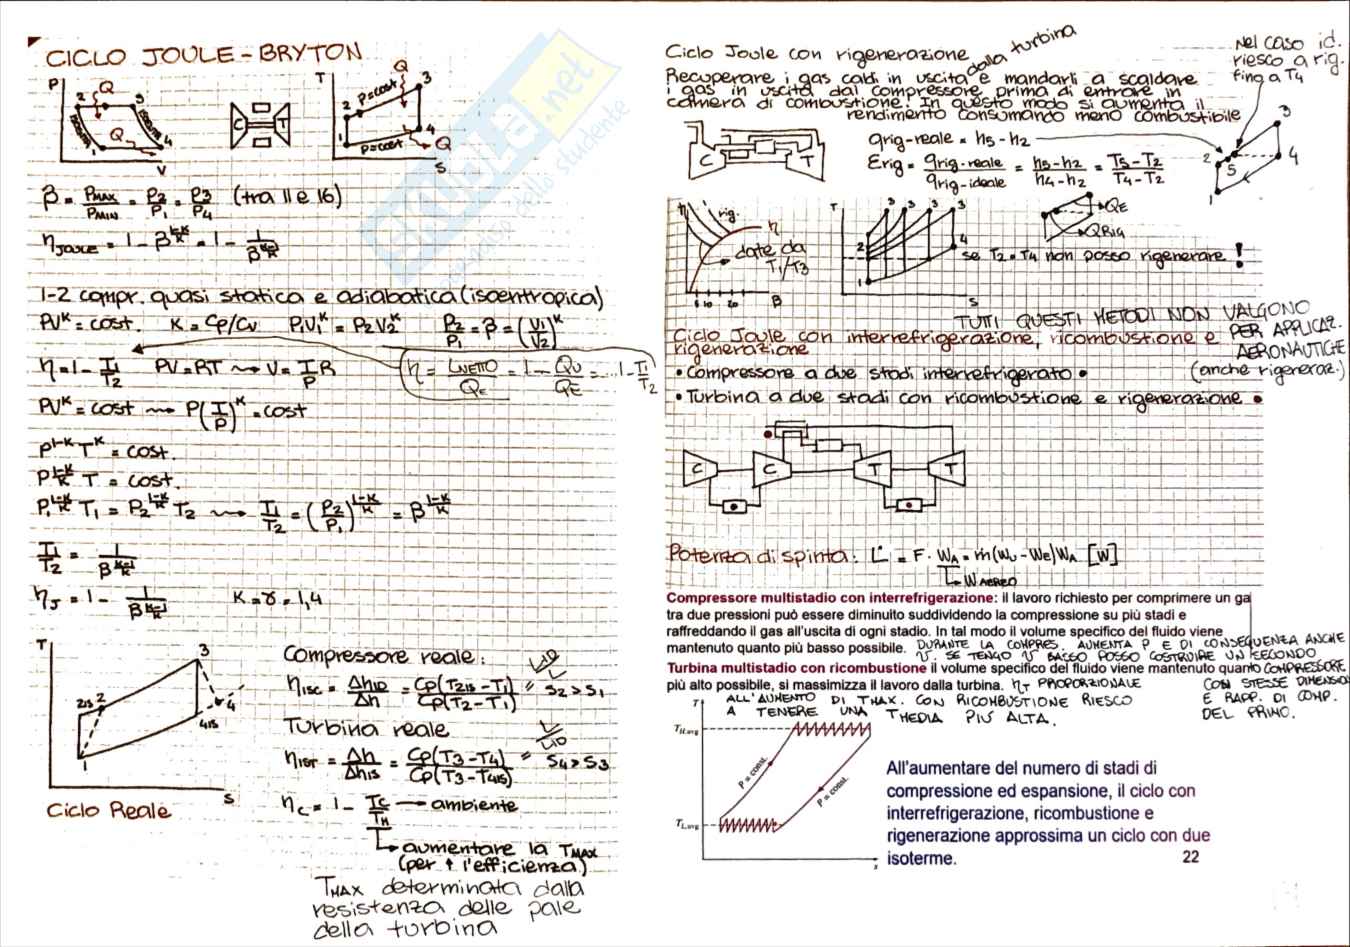 CICLO JOULE-BRYTON
P
2
3
Q
Q
1
4
V
C
T
T
Q
3
2
P=cost
1
4
P=cost
Q
S
β = PMAX/PMIN = P2/P1 = P3/P4 (tra 11 e 16)
ηJOULE = 1 - β^(1-K/K) = 1 - 1/β^(K-1/K)
1-2 compr. quasi statica e adiabatica (isoentropica)
PV^K = cost. K = Cp/Cv P1V1^K = P2V2^K P2/P1 = β = (V1/V2)^K
η = 1 - T1/T2 PV = RT ⟿ V = T/P R
η = LNETTO/QE = 1 - QU/QE = ... 1 - T1/T2
PV^K = cost ⟿ P(T/P)^K = cost
P^(1-K) T^K = cost.
P^(1-K/K) T = cost.
P1^(1-K/K) T1 = P2^(1-K/K) T2 ⟿ T1/T2 = (P2/P1)^(1-K/K) = β^(1-K/K)
T1/T2 = 1/β^(K-1/K)
ηJ = 1 - 1/β^(K-1/K) K = γ = 1,4
T
3
2is
2
4
4is
1
S
Ciclo Reale
Compressore reale: L/LID
ηISC = ΔhID/Δh = Cp(T2IS - T1)/Cp(T2 - T1) = S2 > S1
Turbina reale L/LID
ηIST = Δh/ΔhIS = Cp(T3 - T4)/Cp(T3 - T4IS) = S4 > S3
ηC = 1 - TC/TH → ambiente
aumentare la TMAX
(per ↑ l'efficienza)
TMAX determinata dalla
resistenza delle pale
della turbina
Ciclo Joule con rigenerazione
Recuperare i gas caldi in uscita dalla turbina e mandarli a scaldare
i gas in uscita dal compressore prima di entrare in
camera di combustione! In questo modo si aumenta il
rendimento consumando meno combustibile
Nel caso id.
riesco a rig.
fino a T4
C
T
qrig-reale = h5 - h2
Erig = qrig-reale/qrig-ideale = h5-h2/h4-h2 = T5-T2/T4-T2
3
2
5
4
1
η
rig.
η
date da
T1/T3
6 10 20
β
T
3 3 3 3
2
4
1
S
QE
QRIG
se T2=T4 non posso rigenerare!
TUTTI QUESTI METODI NON VALGONO
PER APPLICAZ.
AERONAUTICHE
(anche rigeneraz.)
Ciclo Joule con interrefrigerazione, ricombustione e
rigenerazione
• Compressore a due stadi interrefrigerato •
• Turbina a due stadi con ricombustione e rigenerazione •
C
C
T
T
Potenza di spinta: L = F · WA = ṁ(WU - We)WA [W]
WAEREO
Compressore multistadio con interrefrigerazione: il lavoro richiesto per comprimere un ga
tra due pressioni può essere diminuito suddividendo la compressione su più stadi e
raffreddando il gas all'uscita di ogni stadio. In tal modo il volume specifico del fluido viene
mantenuto quanto più basso possibile. DURANTE LA COMPRES. AUMENTA P E DI CONSEGUENZA ANCHE
V. SE TENGO V BASSO POSSO COSTRUIRE UN SECONDO
COMPRESSORE
CON STESSE DIMENSIO
E RAPP. DI COMP.
DEL PRIMO.
Turbina multistadio con ricombustione il volume specifico del fluido viene mantenuto quanto
più alto possibile, si massimizza il lavoro dalla turbina. ηT PROPORZIONALE
ALL'AUMENTO DI TMAX. CON RICOMBUSTIONE RIESCO
A TENERE UNA TMEDIA PIU' ALTA.
T
TH,avg
P = const.
P = const.
TL,avg
s
All'aumentare del numero di stadi di
compressione ed espansione, il ciclo con
interrefrigerazione, ricombustione e
rigenerazione approssima un ciclo con due
isoterme.
22